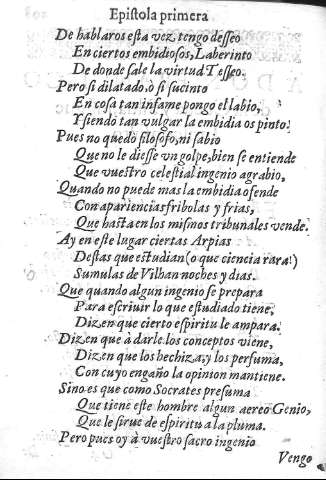 Epistola primera
De hablaros esta vez tengo desseo
En ciertos embidiosos, Laberinto
De donde sale la virtud Tesseo.
Pero si dilatado, ò si sucinto
En cosa tan infame pongo el labio,
Y siendo tan vulgar la embidia os pinto:
Pues no quedò filosofo, ni sabio
Que no le diesse vn golpe, bien se entiende
Que vuestro celestial ingenio agrabio,
Quando no puede mas la embidia ofende
Con apariencias fribolas y frias,
Que hasta en los mismos tribunales vende.
Ay en este lugar ciertas Arpias
Destas que estudian (o que ciencia rara!)
Sumulas de Vilhan noches y dias.
Que quando algun ingenio se prepara
Para escriuir lo que estudiado tiene,
Dizen que cierto espiritu le ampara.
Dizen que à darle los conceptos viene,
Dizen que los hechiza, y los perfuma,
Con cuyo engaño la opinion mantiene.
Sino es que como Socrates presuma
Que tiene este hombre algun aereo Genio,
Que le sirue de espiritu a la pluma.
Pero pues oy à vuestro sacro ingenio
Vengo